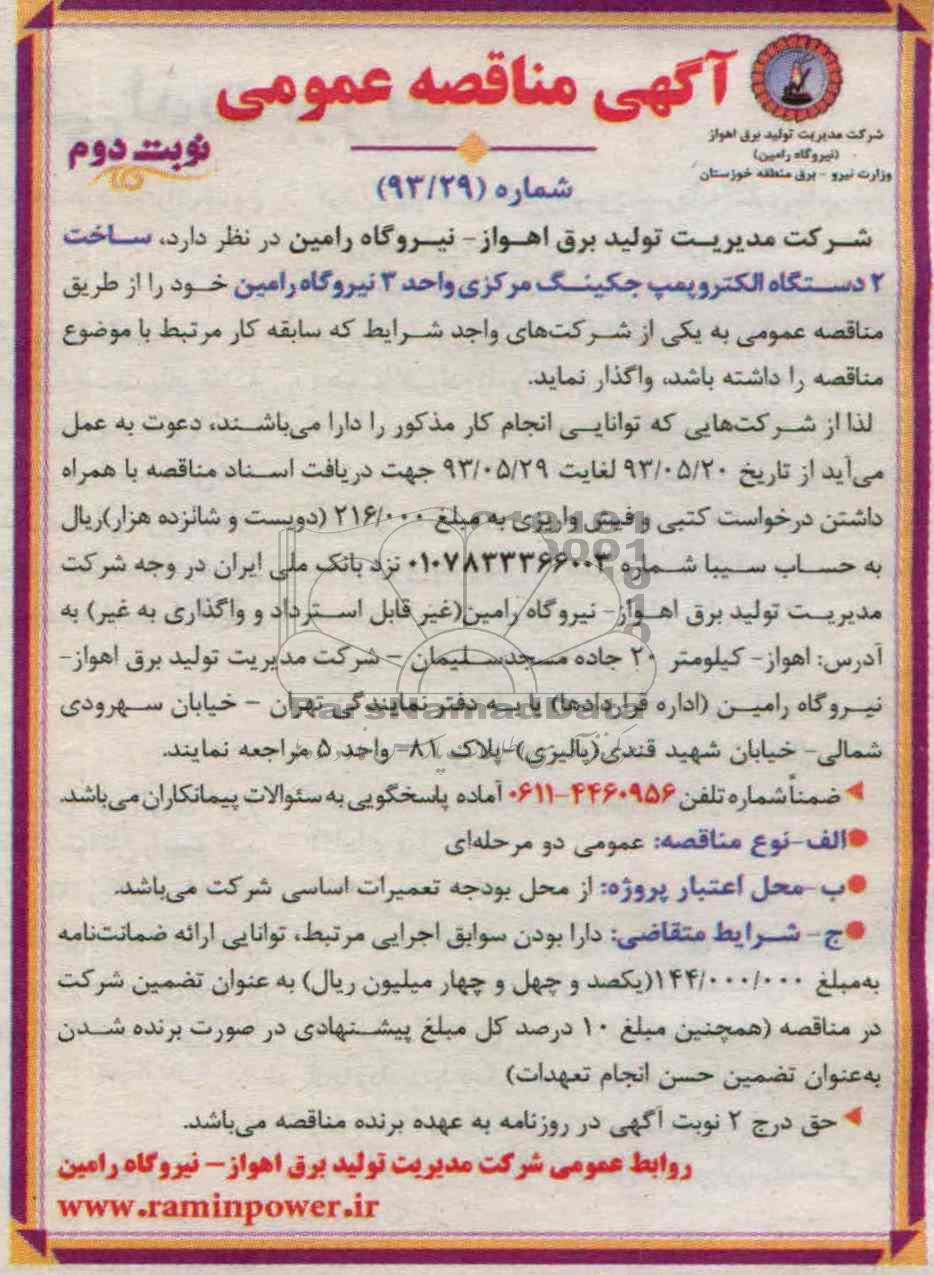 آگهی مناقصه عمومی
شرکت مدیریت تولید برق اهواز
(نیروگاه رامین)
وزارت نیرو - برق منطقه خوزستان
نوبت دوم
شماره (۹۳/۲۹)
شرکت مدیریت تولید برق اهواز- نیروگاه رامین در نظر دارد، ساخت
۲ دستگاه الکتروپمپ جکینگ مرکزی واحد ۳ نیروگاه رامین خود را از طریق
مناقصه عمومی به یکی از شرکت‌های واجد شرایط که سابقه کار مرتبط با موضوع
مناقصه را داشته باشد، واگذار نماید.
لذا از شرکت‌هایی که توانایی انجام کار مذکور را دارا می‌باشند، دعوت به عمل
می‌آید از تاریخ ۹۳/۰۵/۲۰ لغایت ۹۳/۰۵/۲۹ جهت دریافت اسناد مناقصه با همراه
داشتن درخواست کتبی و فیش واریزی به مبلغ ۲۱۶/۰۰۰ (دویست و شانزده هزار)ریال
به حساب سیبا شماره ۰۱۰۷۸۳۳۳۶۶۰۰۳ نزد بانک ملی ایران در وجه شرکت
مدیریت تولید برق اهواز- نیروگاه رامین(غیر قابل استرداد و واگذاری به غیر) به
آدرس: اهواز- کیلومتر ۲۰ جاده مسجدسلیمان - شرکت مدیریت تولید برق اهواز-
نیروگاه رامین (اداره قراردادها) یا به دفتر نمایندگی تهران - خیابان سهرودی
شمالی- خیابان شهید قندی(پالیزی)-پلاک ۸۱- واحد ۵ مراجعه نمایند.
ضمناً شماره تلفن ۴۴۶۰۹۵۶-۰۶۱۱ آماده پاسخگویی به سئوالات پیمانکاران می‌باشد.
الف-نوع مناقصه: عمومی دو مرحله‌ای
ب-محل اعتبار پروژه: از محل بودجه تعمیرات اساسی شرکت می‌باشد.
ج- شرایط متقاضی: دارا بودن سوابق اجرایی مرتبط، توانایی ارائه ضمانت‌نامه
به‌مبلغ ۱۴۴/۰۰۰/۰۰۰(یکصد و چهل و چهار میلیون ریال) به عنوان تضمین شرکت
در مناقصه (همچنین مبلغ ۱۰ درصد کل مبلغ پیشنهادی در صورت برنده شدن
به‌عنوان تضمین حسن انجام تعهدات)
حق درج ۲ نوبت آگهی در روزنامه به عهده برنده مناقصه می‌باشد.
روابط عمومی شرکت مدیریت تولید برق اهواز- نیروگاه رامین
www.raminpower.ir
ParsNamadData